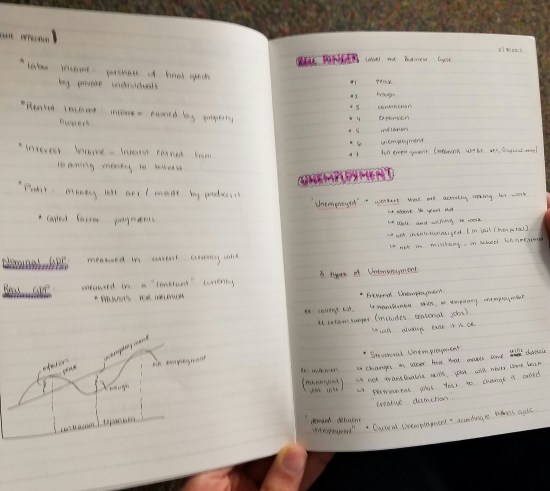 * Labor Income - purchase of final goods
by private individuals
* Rental Income - income earned by property
owners
* Interest Income - income earned from
loaning money to business
* Profit - money left over / made by producers
* called factor payments
Nominal GDP measured in current currency value
Real GDP measured in a "constant" currency
* ADJUSTS FOR INFLATION
inflation
peak
unemployment
full employment
trough
contraction expansion
BELL RINGER Label the Business Cycle
#1 Peak
#2 trough
#3 contraction
#4 expansion
#5 inflation
#6 unemployment
#7 full employment
UNEMPLOYMENT
"Unemployed" = workers that are actively looking for work
↳ above 16 years old
↳ able and willing to work
↳ not institutionalized (in jail / hospital)
↳ not in military, in school full time
3 Types of Unemployment
* Frictional Unemployment
↳ transferable skills, or temporary unemployment
(includes seasonal jobs)
↳ will always exist & is ok
* Structural Unemployment
↳ changes in labor force that makes some skills obsolete
↳ not transferable skills, jobs will never come back
↳ permanent
"creative destruction"
"demand deficient
unemployment" * Cyclical Unemployment - according to business cycle